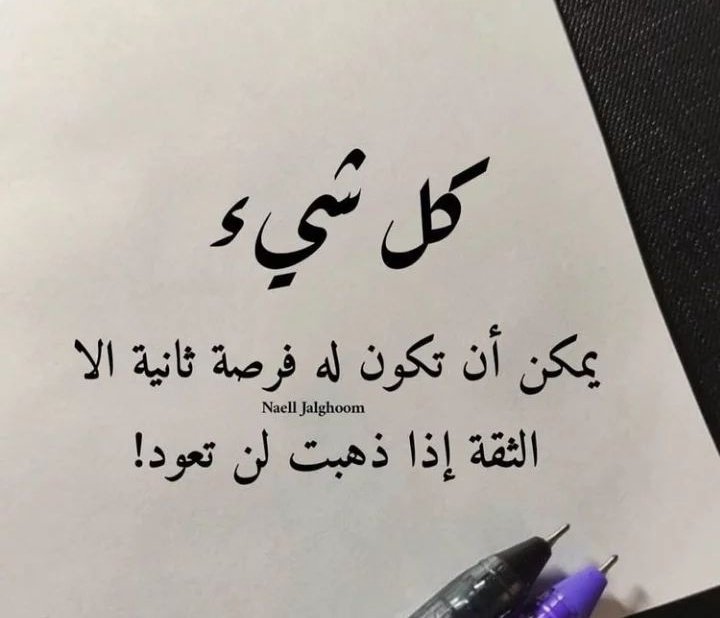 كل شيء
يمكن أن تكون له فرصة ثانية الا
Naell Jalghoom
الثقة إذا ذهبت لن تعود!